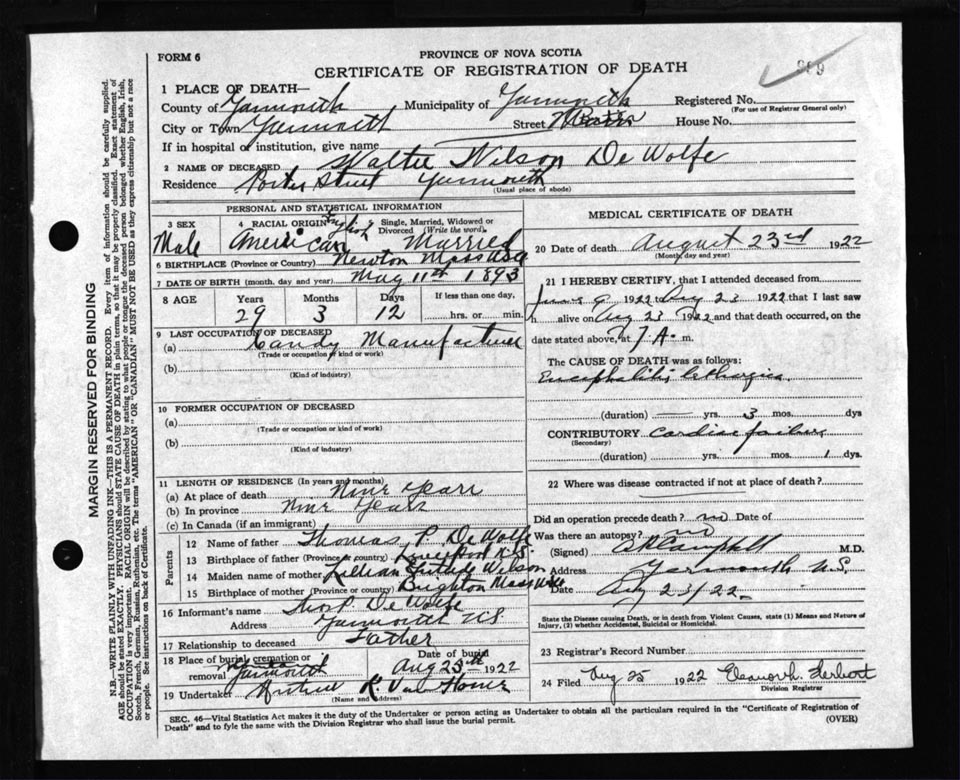 FORM 6
PROVINCE OF NOVA SCOTIA
CERTIFICATE OF REGISTRATION OF DEATH
1 PLACE OF DEATH—
County of Yarmouth Municipality of Yarmouth Registered No.
(For use of Registrar General only)
City or Town Yarmouth Street House No.
If in hospital or institution, give name
2 NAME OF DECEASED Walter Wilson De Wolfe
Residence Porter Street Yarmouth
(Usual place of abode)
PERSONAL AND STATISTICAL INFORMATION
3 SEX 4 RACIAL ORIGIN English Single, Married, Widowed or
Divorced (Write the word).
Male American Married
6 BIRTHPLACE (Province or Country) Newton Mass USA
7 DATE OF BIRTH (month, day and year) May 11th 1893
8 AGE Years Months Days If less than one day,
29 3 12 hrs. or min.
9 LAST OCCUPATION OF DECEASED
(a) Candy Manufacturer
(Trade or occupation or kind or work)
(b)
(Kind of industry)
10 FORMER OCCUPATION OF DECEASED
(a)
(Trade or occupation or kind of work)
(b)
(Kind of industry)
11 LENGTH OF RESIDENCE (In years and months)
(a) At place of death Nine Years
(b) In province Nine Years
(c) In Canada (if an immigrant)
Parents
12 Name of father Thomas P. De Wolfe
13 Birthplace of father (Province or country) Liverpool N.S.
14 Maiden name of mother Lillian Wilson
15 Birthplace of mother (Province or country) Brighton Mass USA
16 Informant's name Thos P. De Wolfe
Address Yarmouth NS
17 Relationship to deceased Father
18 Place of burial, cremation or Date of burial
removal Yarmouth Aug 25th 1922
19 Undertaker K. Van Horne
(Name and Address)
MEDICAL CERTIFICATE OF DEATH
20 Date of death August 23rd 1922
(Month, day and year)
21 I HEREBY CERTIFY, that I attended deceased from
June 9 1922 Aug 23 1922 that I last saw
h alive on Aug 23 1922 and that death occurred, on the
date stated above, at 7 A. m.
The CAUSE OF DEATH was as follows:
Encephalitis Lethargica
(duration) yrs. 3 mos. dys
CONTRIBUTORY Cardiac failure
(Secondary)
(duration) yrs. mos. 1 dys.
22 Where was disease contracted if not at place of death?
Did an operation precede death? no Date of
Was there an autopsy? no
(Signed) Campbell M.D.
Address Yarmouth N.S.
Date Aug 23/22
State the Disease causing Death, or in death from Violent Causes, state (1) Means and Nature of
Injury, (2) whether Accidental, Suicidal or Homicidal.
23 Registrar's Record Number
24 Filed Aug 25 1922 Eleanor L. Herbert
Division Registrar
SEC. 46—Vital Statistics Act makes it the duty of the Undertaker or person acting as Undertaker to obtain all the particulars required in the "Certificate of Registration of
Death" and to fyle the same with the Division Registrar who shall issue the burial permit.
(OVER)
MARGIN RESERVED FOR BINDING
N.B.—WRITE PLAINLY WITH UNFADING INK—THIS IS A PERMANENT RECORD. Every item of information should be carefully supplied.
AGE should be stated EXACTLY. PHYSICIANS should STATE CAUSE OF DEATH in plain terms, so that it may be properly classified. Exact statement of
OCCUPATION is very important. RACIAL ORIGIN will be described by stating to what people or tongue the deceased person belonged whether English, Irish,
Scotch, French, German, Russian, Ruthenian, etc. The terms "AMERICAN" or "CANADIAN" MUST NOT BE USED as they express citizenship but not a race
or people. See instructions on back of Certificate.